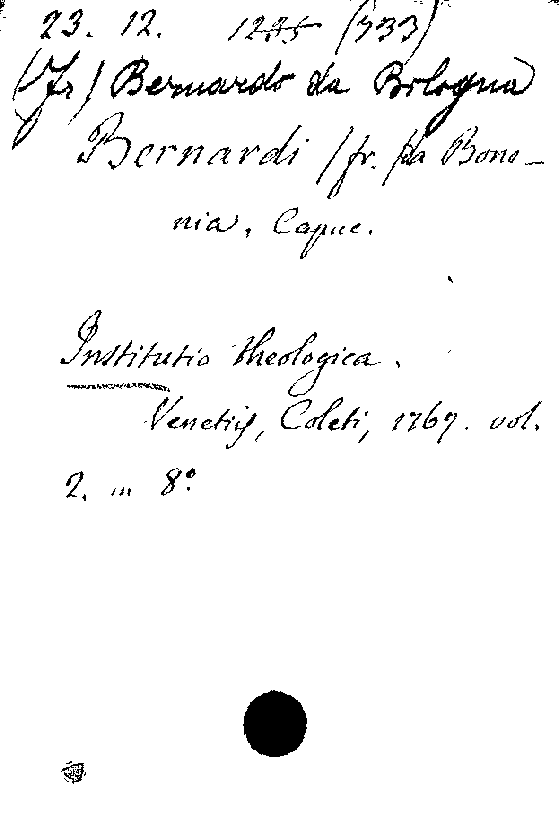 23. 12. (733)
(Fr) Bernardo da Bologna
Bernardi /fr. da Bono-
nia, Capuc.
Institutio theologica.
Venetijs, Coleti, 1767. vol.
2. in 8º